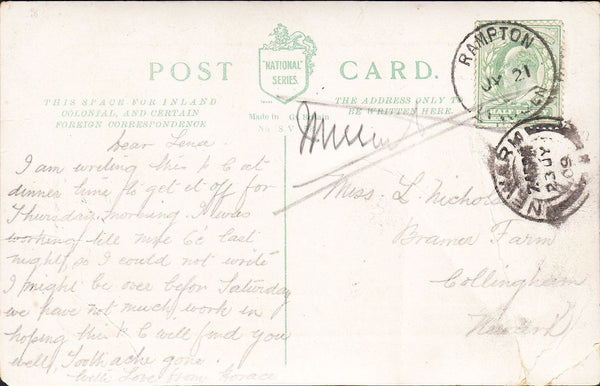 POST CARD.
"NATIONAL"
SERIES.
THIS SPACE FOR INLAND
COLONIAL, AND CERTAIN
FOREIGN CORRESPONDENCE
THE ADDRESS ONLY TO
BE WRITTEN HERE.
Made in Gt Britain
RAMPTON
JY 21
NEWARK
23 JY
09
Dear Lena
I am writing this P C at
dinner time to get it off for
Thursday morning I was
working till nine O'c last
night so I could not write
I might be over befor Saturday
we have not much work in
hoping this P C will find you
well, Tooth ache gone.
With Love from Horace
Miss L Nichols
Bramer Farm
Collingham
Newark